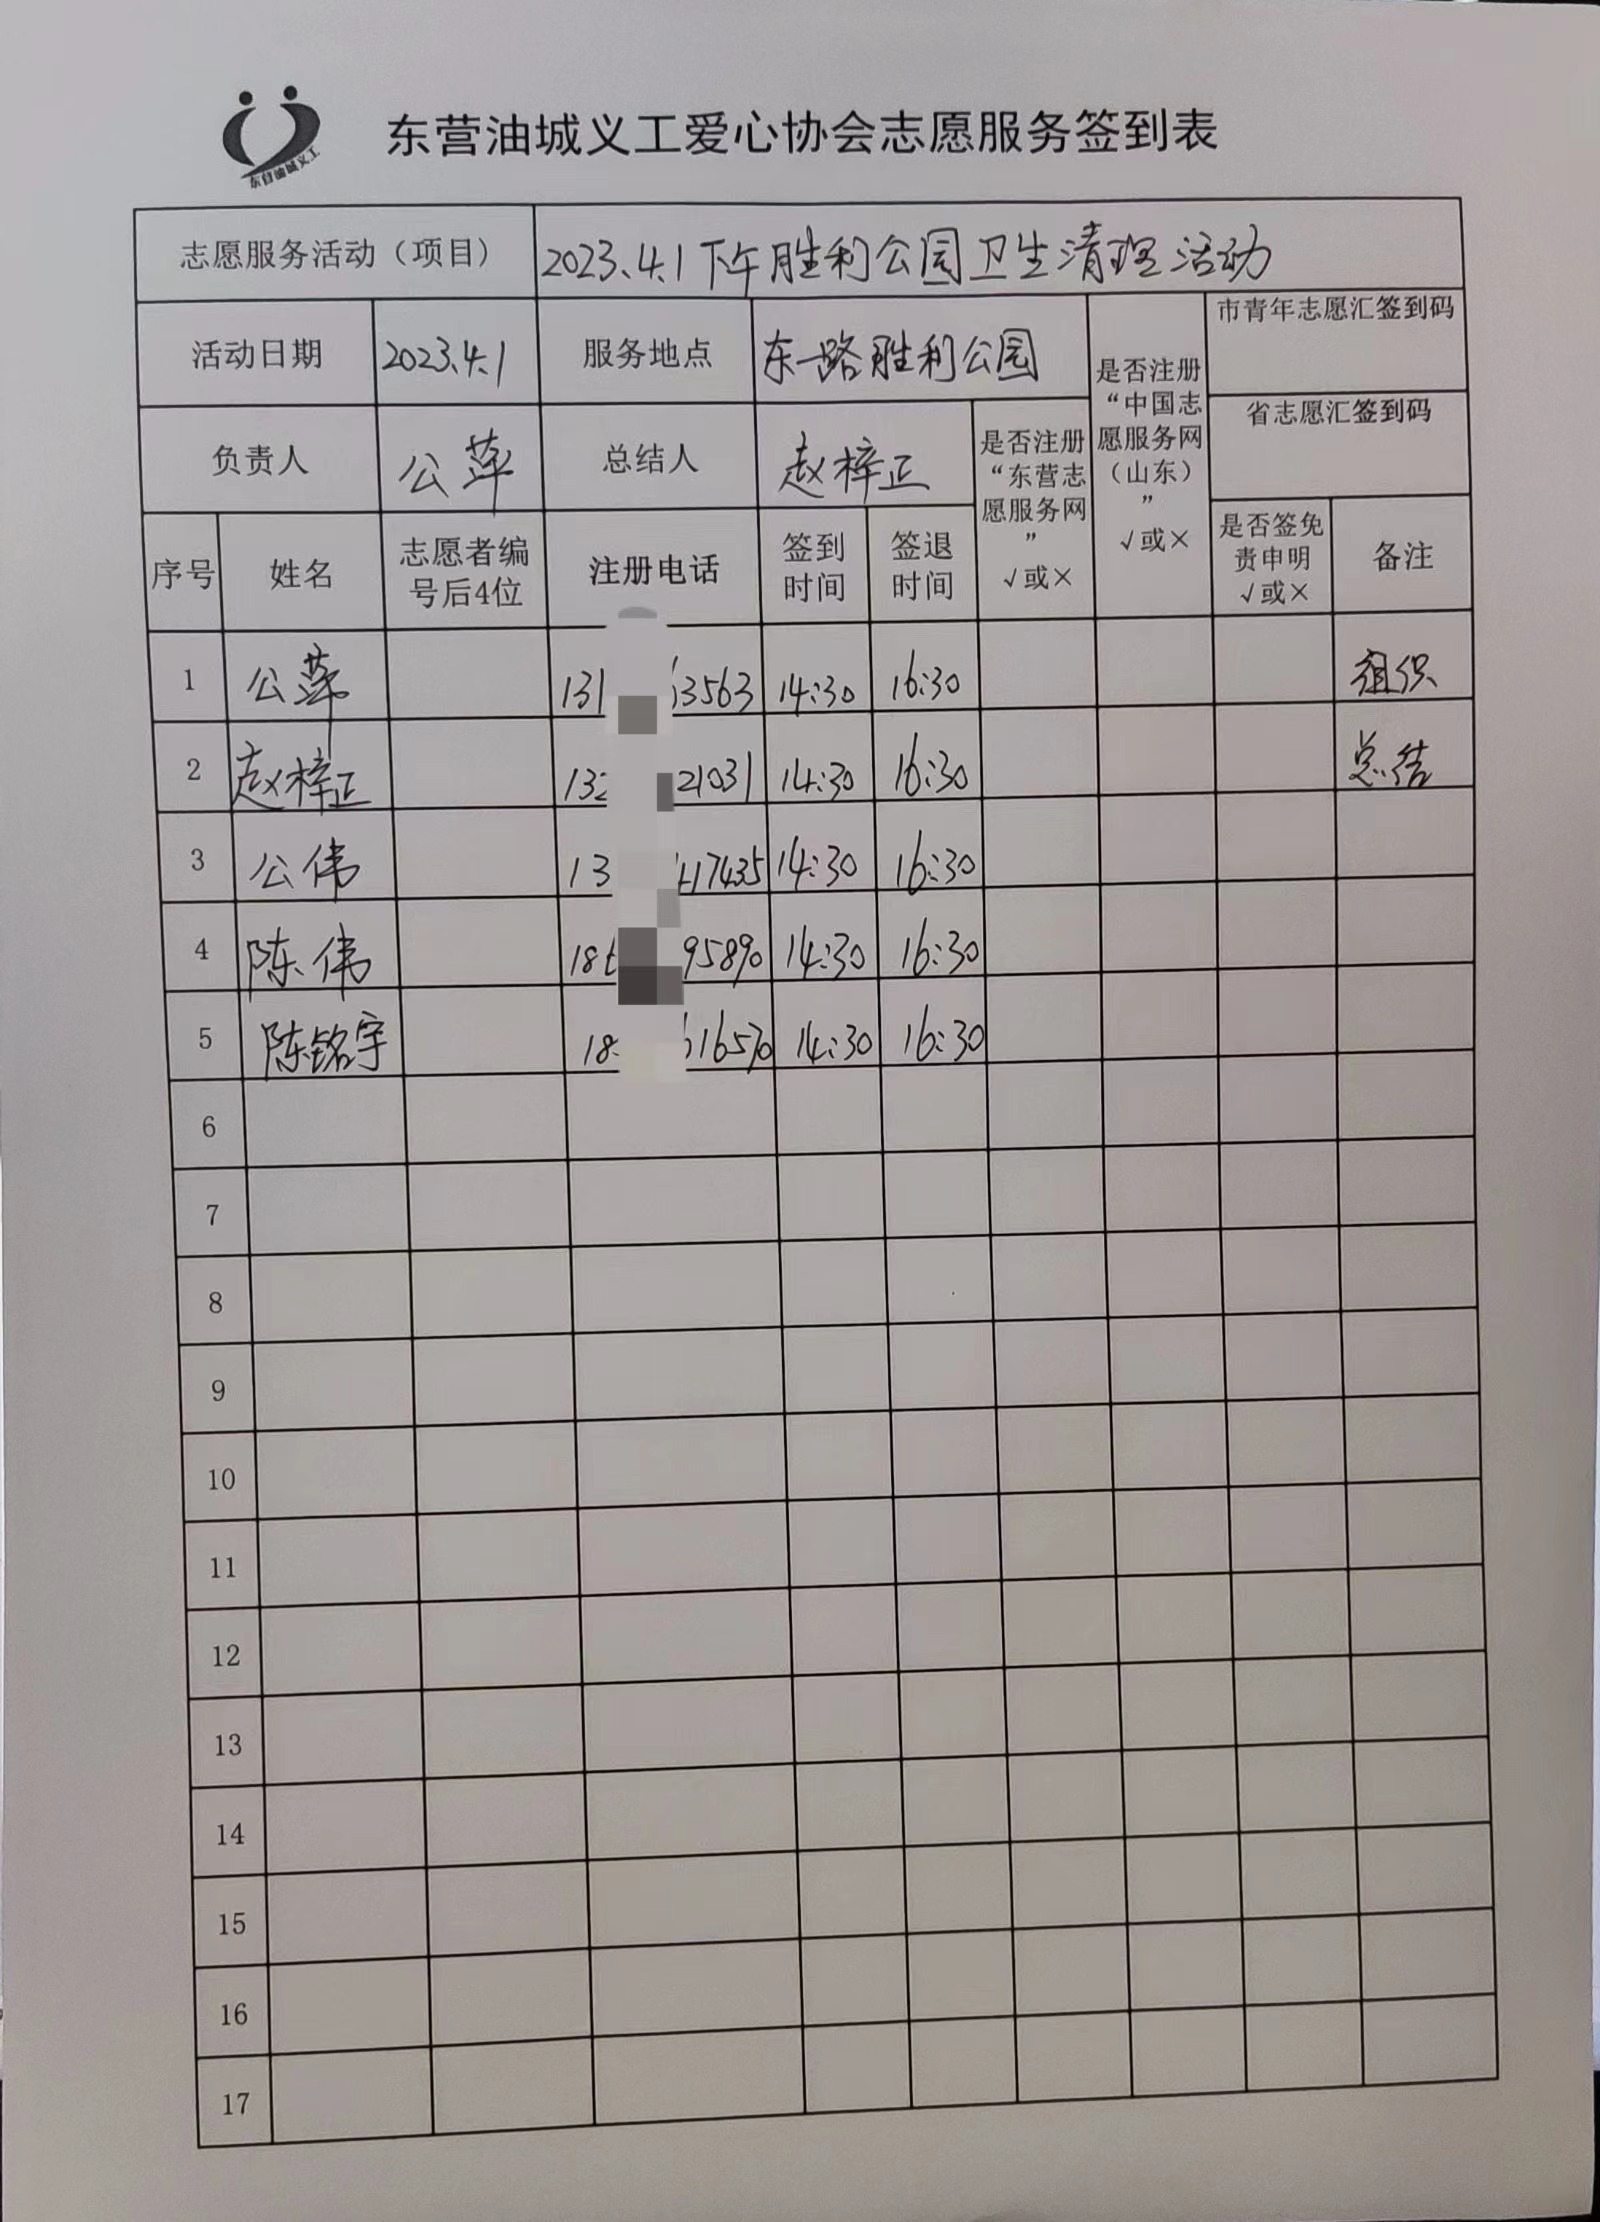 东营油城义工
东营油城义工爱心协会志愿服务签到表
志愿服务活动（项目） 2023.4.1下午胜利公园卫生清理活动
活动日期 2023.4.1 服务地点 东一路胜利公园 是否注册“中国志愿服务网（山东）” √或× 市青年志愿汇签到码
省志愿汇签到码
负责人 公萍 总结人 赵梓正 是否注册“东营志愿服务网” √或×
序号 姓名 志愿者编号后4位 注册电话 签到时间 签退时间 是否签免责申明 √或× 备注
1 公萍 131 3563 14:30 16:30 组织
2 赵梓正 132 21031 14:30 16:30 总结
3 公伟 13 17435 14:30 16:30
4 陈伟 18 95890 14:30 16:30
5 陈铭宇 18 16570 14:30 16:30
6
7
8
9
10
11
12
13
14
15
16
17